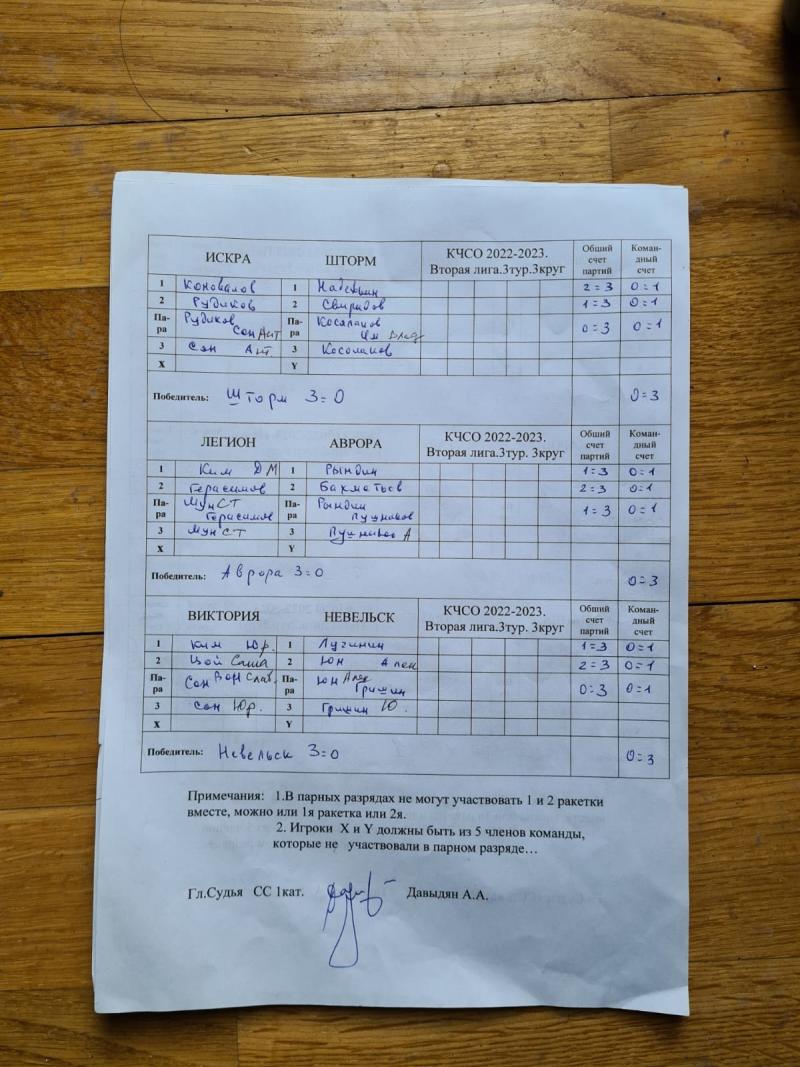 ИСКРА ШТОРМ КЧСО 2022-2023. Вторая лига.3тур.3круг Общий счет партий Коман-дный счет
1 Коновалов 1 Надежкин 2=3 0=1
2 Рудиков 2 Свиридов 1=3 0=1
Па-ра Рудиков Сон Ант Па-ра Косолапов Им Влад 0=3 0=1
3 Сон Ант. 3 Косолапов
X Y
Победитель: Шторм 3=0 0=3
ЛЕГИОН АВРОРА КЧСО 2022-2023. Вторая лига.3тур. 3круг Общий счет партий Коман-дный счет
1 Ким ДМ 1 Рындин 1=3 0=1
2 Герасимов 2 Бахметьев 2=3 0=1
Па-ра Мун СТ Герасимов Па-ра Рындин Лушников 1=3 0=1
3 Мун СТ 3 А
X Y
Победитель: Аврора 3=0 0=3
ВИКТОРИЯ НЕВЕЛЬСК КЧСО 2022-2023. Вторая лига.3тур. 3круг Общий счет партий Коман-дный счет
1 Ким Юр. 1 Лугинин 1=3 0=1
2 Цой Саша 2 Юн Алек 2=3 0=1
Па-ра Сон Вон Слав. Па-ра Юн Алек Гришин 0=3 0=1
3 Сон Юр. 3 Гришин Ю.
X Y
Победитель: Невельск 3=0 0=3
Примечания: 1.В парных разрядах не могут участвовать 1 и 2 ракетки
вместе, можно или 1я ракетка или 2я.
2. Игроки X и Y должны быть из 5 членов команды,
которые не участвовали в парном разряде…
Гл.Судья СС 1кат. Давыдян А.А.